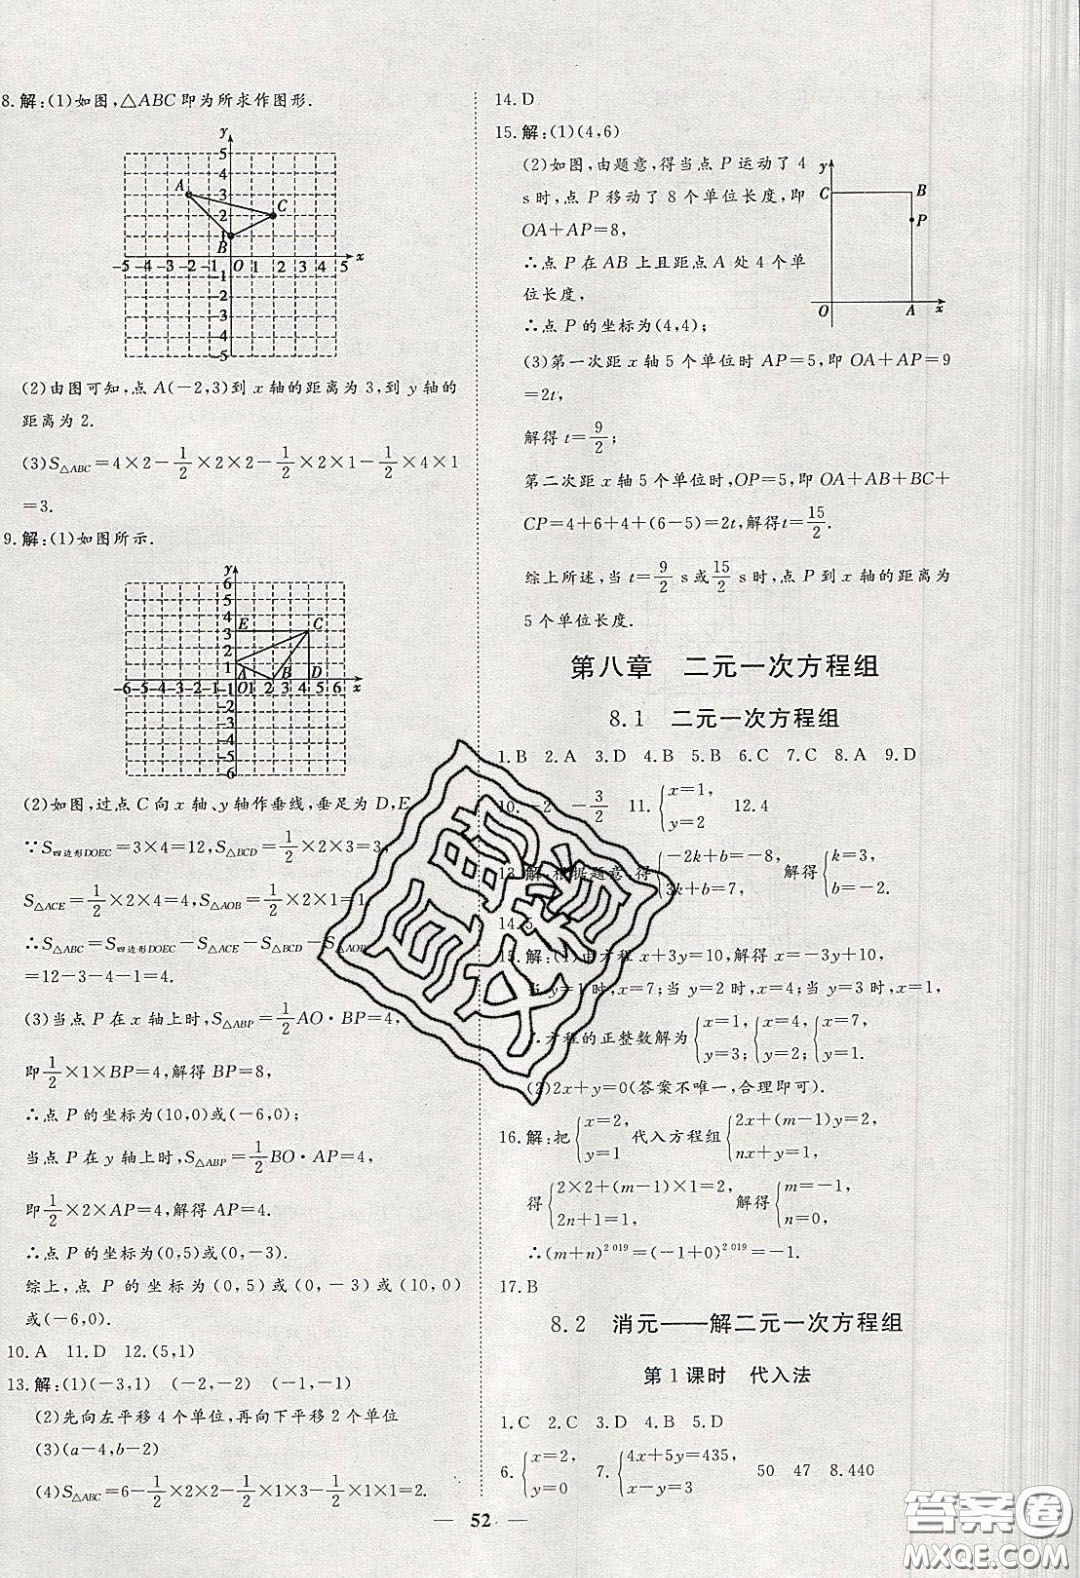 8.解:(1)如图,△ABC即为所求作图形.
y
5
4
A 3
2 C
1
B
-5 -4 -3 -2 -1 O 1 2 3 4 5 x
-1
-2
-3
-4
-5
(2)由图可知,点A(-2,3)到x轴的距离为3,到y轴的
距离为2.
(3)S△ABC=4×2-1/2×2×2-1/2×2×1-1/2×4×1
=3.
9.解:(1)如图所示.
y
6
5
4
E 3 C
2
1
A B D
-6 -5 -4 -3 -2 -1 O 1 2 3 4 5 6 x
-2
-3
-4
-5
-6
(2)如图,过点C向x轴、y轴作垂线,垂足为D,E.
∵S四边形DOEC=3×4=12,S△BCD=1/2×2×3=3,
S△ACE=1/2×2×4=4,S△AOB=1/2×2×1=1
∴S△ABC=S四边形DOEC-S△ACE-S△BCD-S△AOB
=12-3-4-1=4.
(3)当点P在x轴上时,S△ABP=1/2AO·BP=4,
即1/2×1×BP=4,解得BP=8,
∴点P的坐标为(10,0)或(-6,0);
当点P在y轴上时,S△ABP=1/2BO·AP=4,
即1/2×2×AP=4,解得AP=4.
∴点P的坐标为(0,5)或(0,-3).
综上,点P的坐标为(0,5)或(0,-3)或(10,0)
或(-6,0).
10.A 11.D 12.(5,1)
13.解:(1)(-3,1) (-2,-2) (-1,-1)
(2)先向左平移4个单位,再向下平移2个单位
(3)(a-4,b-2)
(4)S△ABC=6-1/2×2×2-1/2×3×1-1/2×1×1=2.
14.D
15.解:(1)(4,6)
(2)如图,由题意,得当点P运动了4
s时,点P移动了8个单位长度,即
OA+AP=8,
∴点P在AB上且距点A处4个单
位长度,
∴点P的坐标为(4,4);
y
C B
P
O A x
(3)第一次距x轴5个单位时AP=5,即OA+AP=9
=2t,
解得t=9/2;
第二次距x轴5个单位时,OP=5,即OA+AB+BC+
CP=4+6+4+(6-5)=2t,解得t=15/2.
综上所述,当t=9/2 s或15/2 s时,点P到x轴的距离为
5个单位长度.
第八章 二元一次方程组
8.1 二元一次方程组
1.B 2.A 3.D 4.B 5.B 6.C 7.C 8.A 9.D
10.-2 -3/2 11.{x=1, y=2 12.4
13.解:根据题意,得{-2k+b=-8, 3k+b=7, 解得{k=3, b=-2.
14.
15.解:(1)由方程x+3y=10,得x=-3y+10,
当y=1时,x=7;当y=2时,x=4;当y=3时,x=1,
∴方程的正整数解为{x=1, y=3; {x=4, y=2; {x=7, y=1.
(2)2x+y=0(答案不唯一,合理即可).
16.解:把{x=2, y=1 代入方程组{2x+(m-1)y=2, nx+y=1,
得{2×2+(m-1)×1=2, 2n+1=1, 解得{m=-1, n=0,
∴(m+n)^2019=(-1+0)^2019=-1.
17.B
8.2 消元——解二元一次方程组
第1课时 代入法
1.C 2.C 3.D 4.B 5.D
6.{x=2, y=0 7.{4x+5y=435, x-y=3 50 47 8.440
52
答案卷
MXQE.COM